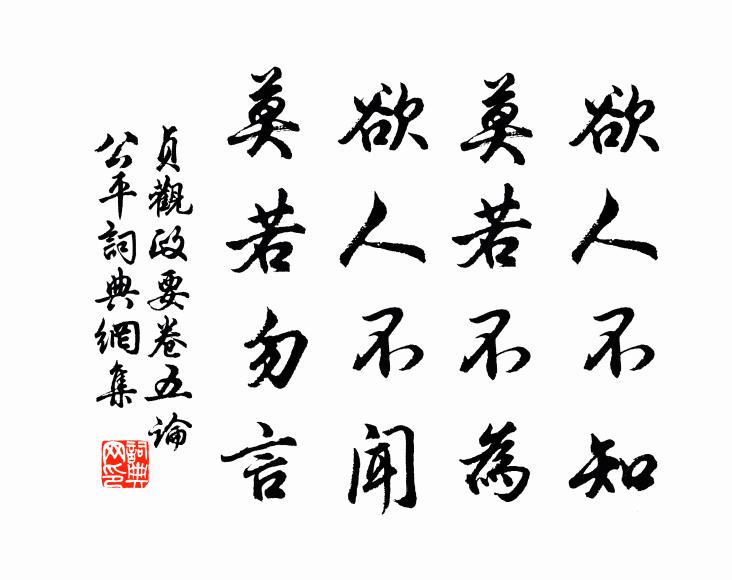 欲人不知
莫若不為
欲人不聞
莫若勿言
貞觀政要卷五論
公平詞典網集
詞典
网印